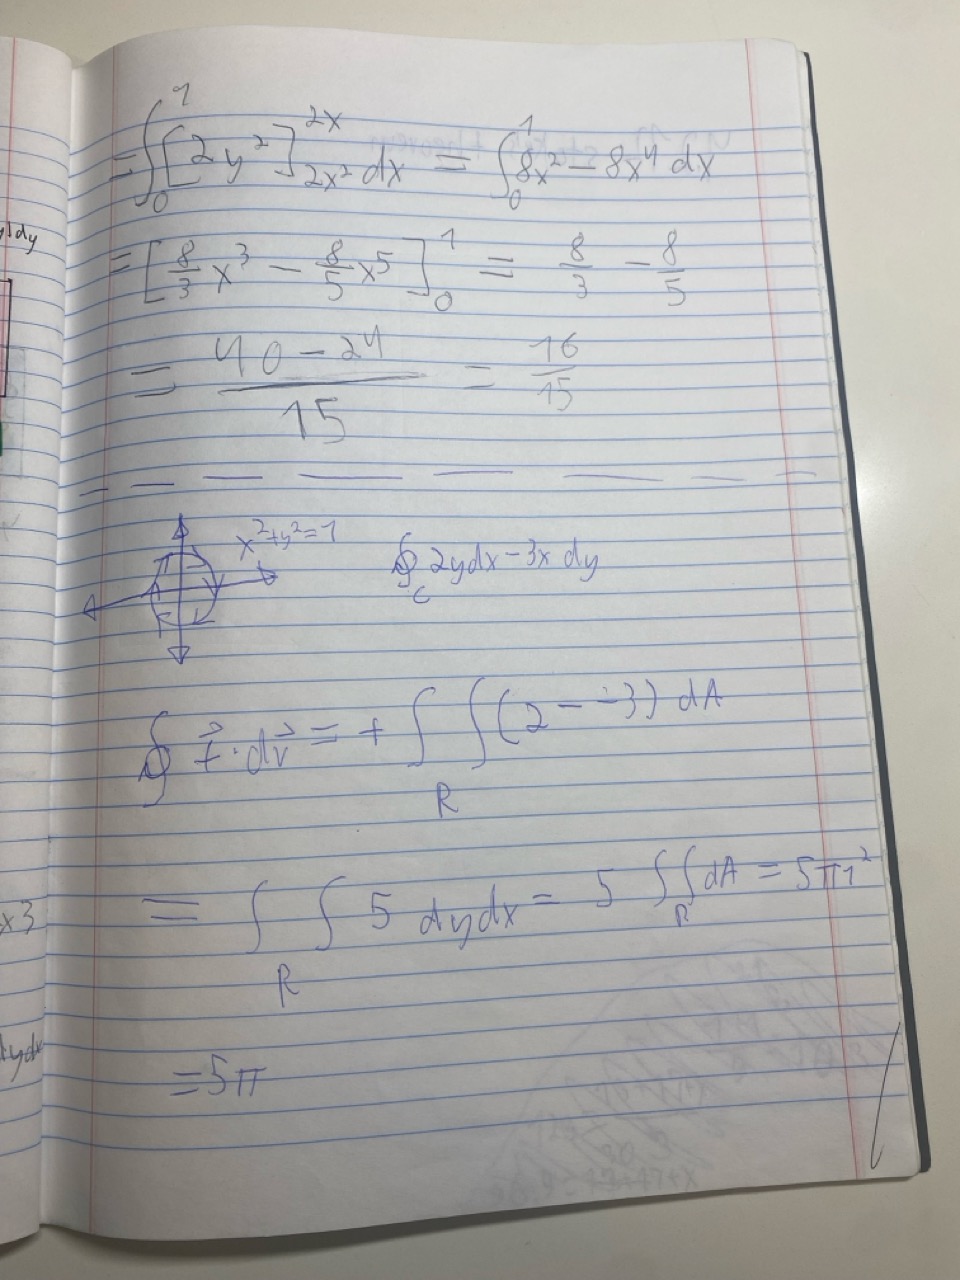 = ∫₀¹ [2y²]_{2x²}^{2x} dx = ∫₀¹ 8x² − 8x⁴ dx
= [8/3 x³ − 8/5 x⁵]₀¹ = 8/3 − 8/5
= (40 − 24)/15 = 16/15
x² + y² = 1
∮_C 2y dx − 3x dy
∮ f⃗ · dr⃗ = + ∫∫_R (2 − −3) dA
= ∫∫_R 5 dy dx = 5 ∫∫_R dA = 5π1²
= 5π